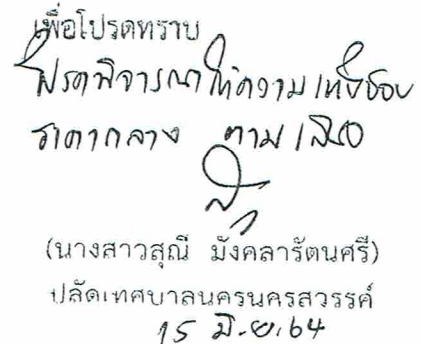 เพื่อโปรดทราบ
โปรดพิจารณาให้ความเห็นชอบ
ราคากลาง ตามเสนอ
(นางสาวสุณี มังคลารัตนศรี)
ปลัดเทศบาลนครนครสวรรค์
15 มิ.ย.64